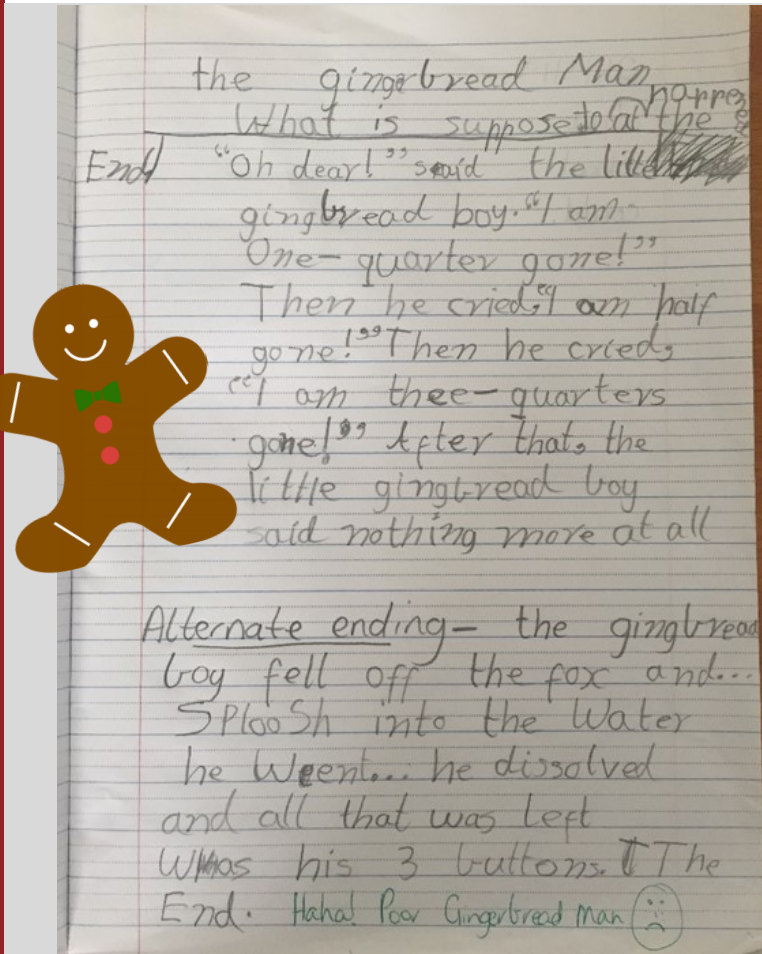 the gingerbread Man
What is suppose to happen at the
End "Oh dear!" said the little
gingbread boy. "I am
One-quarter gone!"
Then he cried, "I am half
gone!" Then he cried,
"I am thee-quarters
gone!" After that, the
little gingbread boy
said nothing more at all
Alternate ending- the gingbread
boy fell off the fox and...
SPlooSh into the Water
he Went... he dissolved
and all that was left
Whas his 3 buttons. The
End. Haha! Poor Gingerbread Man